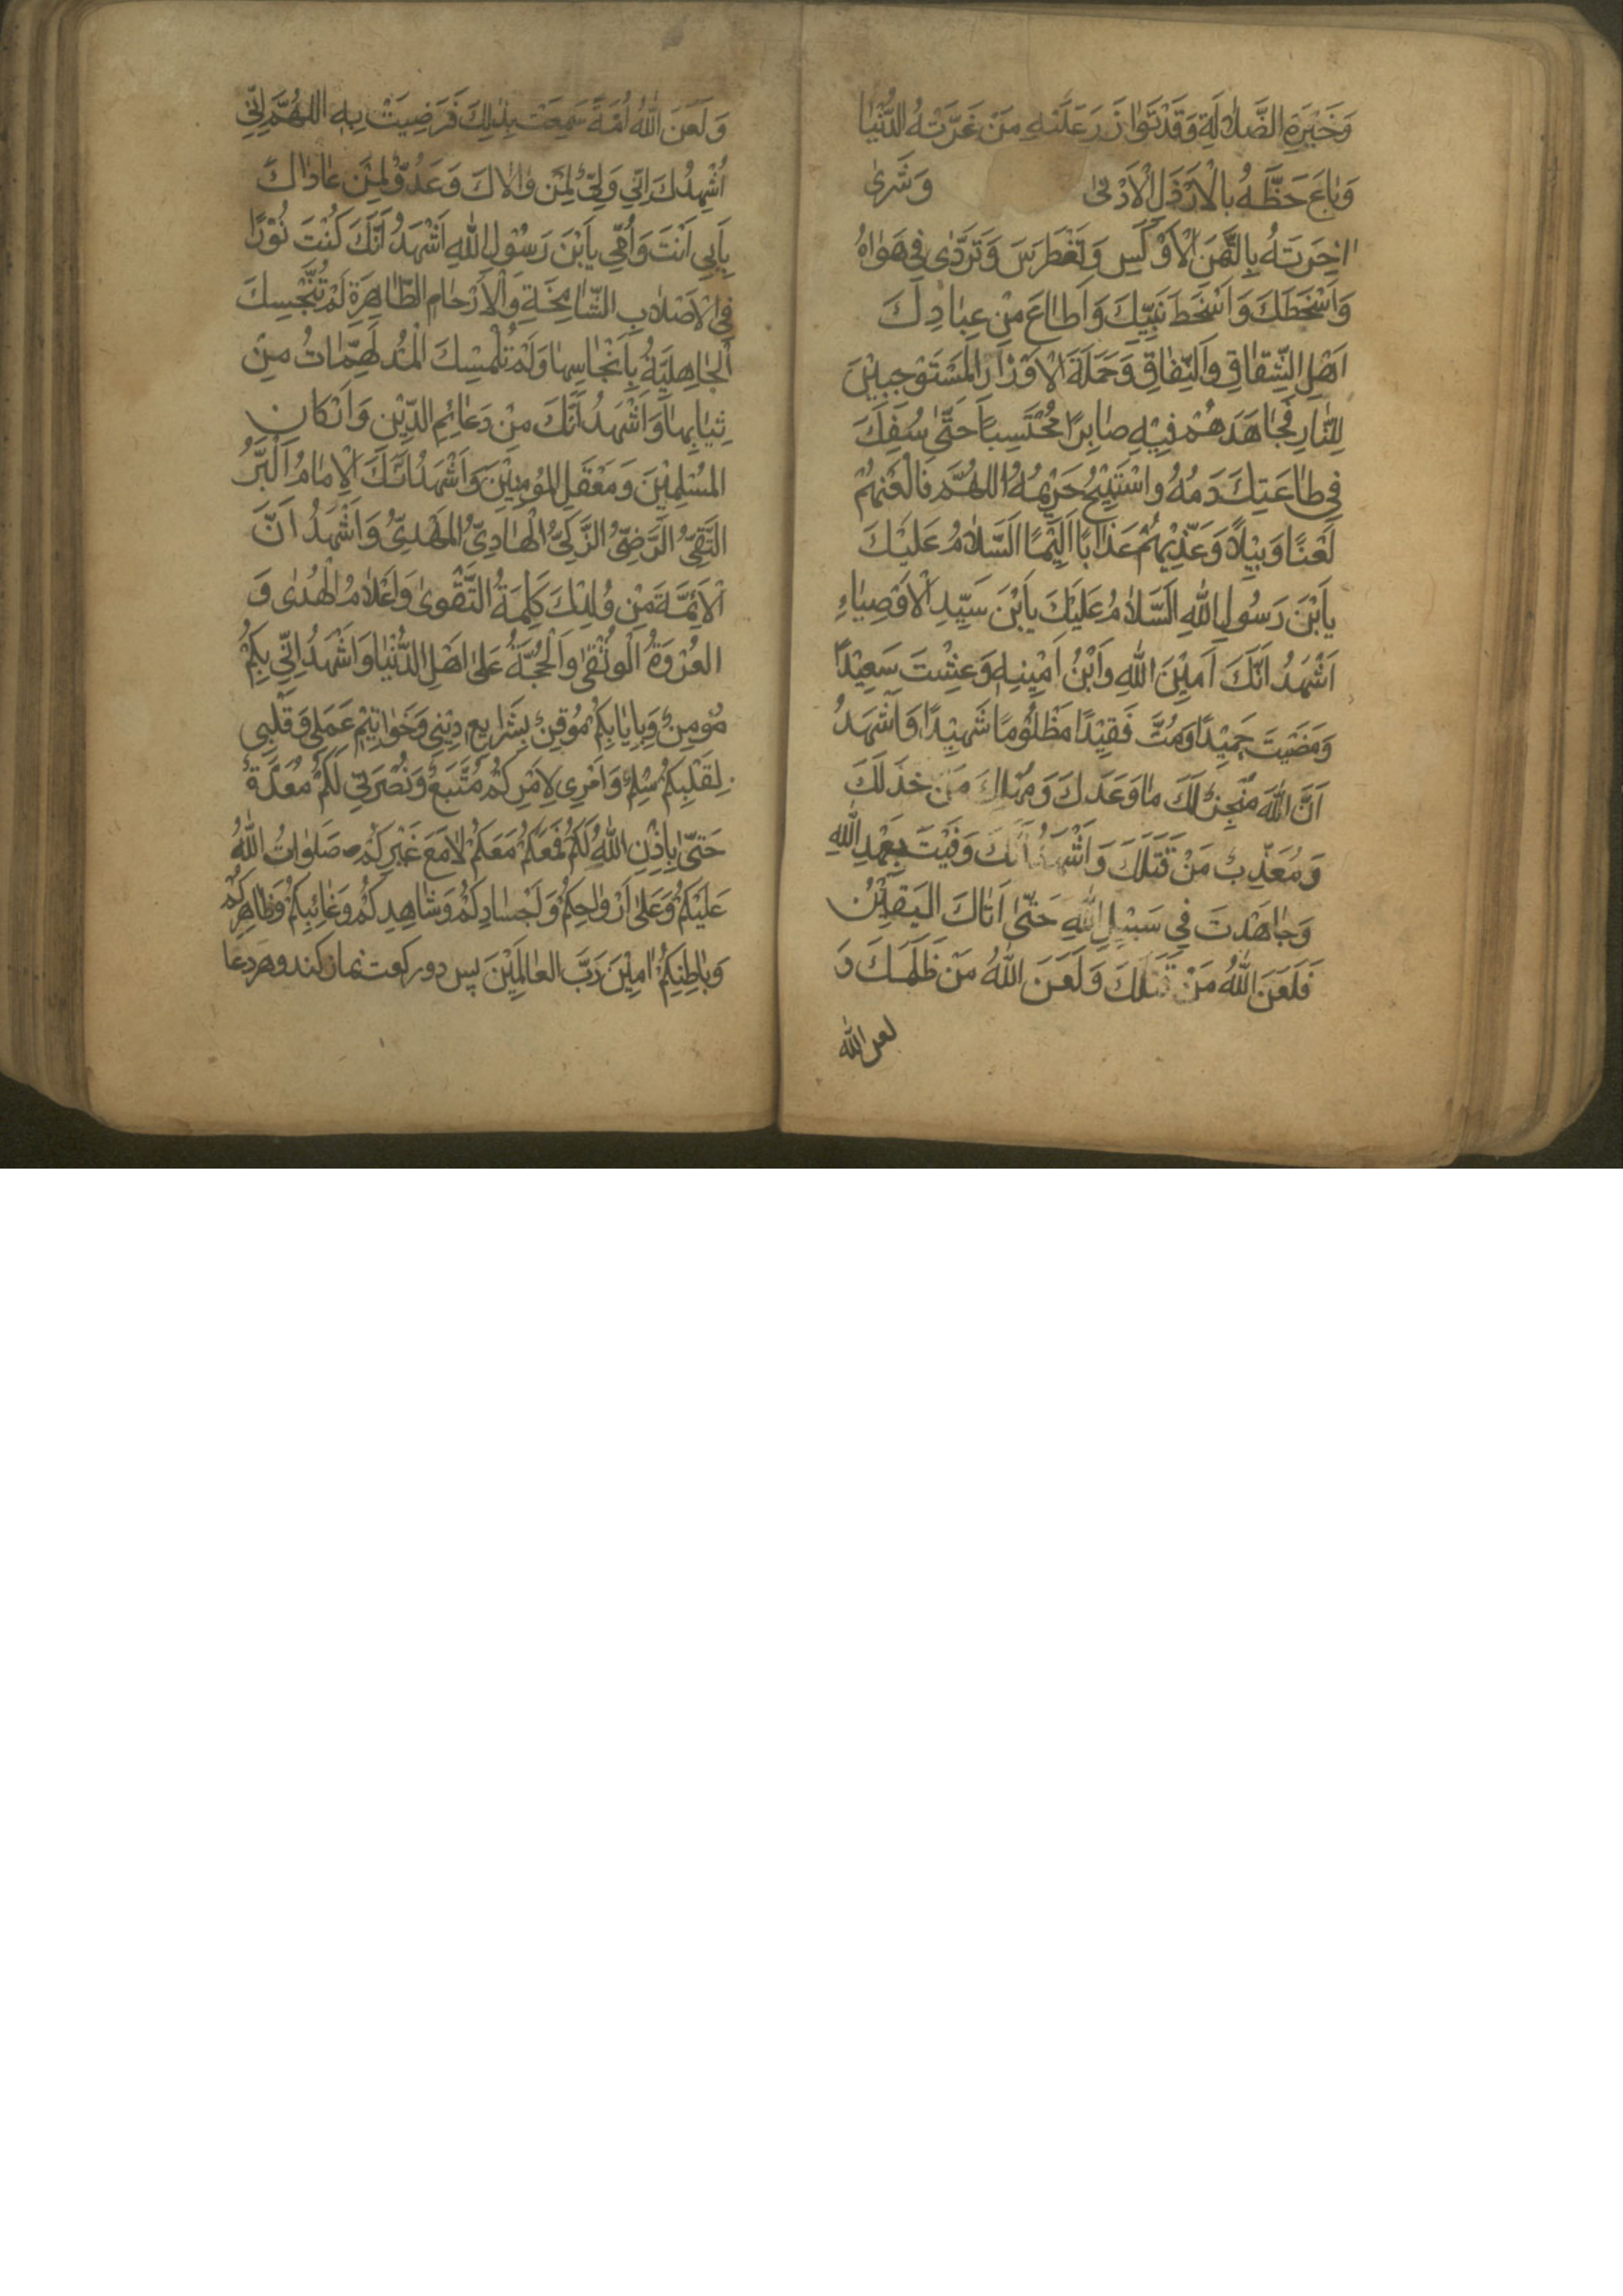 وَحَيْرَةِ الضَّلَالَةِ وَقَدْ تَوَازَرَ عَلَيْهِ مَنْ غَرَّتْهُ الدُّنْيَا
وَبَاعَ حَظَّهُ بِالْاَرْذَلِ الْاَدْنىٰ وَشَرىٰ
اٰخِرَتَهُ بِالثَّمَنِ الْاَوْكَسِ وَتَغَطْرَسَ وَتَرَدّٰى فِي هَوَاهُ
وَاَسْخَطَكَ وَاَسْخَطَ نَبِيَّكَ وَاَطَاعَ مِنْ عِبَادِكَ
اَهْلَ الشِّقَاقِ وَالنِّفَاقِ وَحَمَلَةَ الْاَوْزَارِ الْمُسْتَوْجِبِيْنَ
لِلنَّارِ فَجَاهَدَهُمْ فِيْهِ صَابِرًا مُحْتَسِبًا حَتّٰى سُفِكَ
فِي طَاعَتِكَ دَمُهُ وَاسْتُبِيْحَ حَرِيْمُهُ اَللّٰهُمَّ فَالْعَنْهُمْ
لَعْنًا وَبِيْلًا وَعَذِّبْهُمْ عَذَابًا اَلِيْمًا اَلسَّلَامُ عَلَيْكَ
يَابْنَ رَسُولِ اللهِ اَلسَّلَامُ عَلَيْكَ يَابْنَ سَيِّدِ الْاَوْصِيَاءِ
اَشْهَدُ اَنَّكَ اَمِيْنَ اللهِ وَابْنُ اَمِيْنِهِ وَعِشْتَ سَعِيْدًا
وَمَضَيْتَ حَمِيْدًا وَمُتَّ فَقِيْدًا مَظْلُوْمًا شَهِيْدًا وَاَشْهَدُ
اَنَّ اللهَ مُنْجِزٌ لَكَ مَا وَعَدَكَ وَمُهْلِكٌ مَنْ خَذَلَكَ
وَمُعَذِّبٌ مَنْ قَتَلَكَ وَاَشْهَدُ اَنَّكَ وَفَيْتَ بِعَهْدِ اللهِ
وَجَاهَدْتَ فِي سَبِيْلِ اللهِ حَتّٰى اَتَاكَ الْيَقِيْنُ
فَلَعَنَ اللهُ مَنْ قَتَلَكَ وَلَعَنَ اللهُ مَنْ ظَلَمَكَ وَ
لعن الله
وَلَعَنَ اللهُ اُمَّةً سَمِعَتْ بِذٰلِكَ فَرَضِيَتْ بِهِ اَللّٰهُمَّ اِنِّي
اُشْهِدُكَ اَنِّي وَلِيٌّ لِمَنْ وَالَاكَ وَعَدُوٌّ لِمَنْ عَادَاكَ
بِاَبِي اَنْتَ وَاُمِّي يَابْنَ رَسُوْلِ اللهِ اَشْهَدُ اَنَّكَ كُنْتَ نُوْرًا
فِي الْاَصْلَابِ الشَّامِخَةِ وَالْاَرْحَامِ الطَّاهِرَةِ لَمْ تُنَجِّسْكَ
الْجَاهِلِيَّةُ بِاَنْجَاسِهَا وَلَمْ تُلْبِسْكَ الْمُدْلَهِمَّاتُ مِنْ
ثِيَابِهَا وَاَشْهَدُ اَنَّكَ مِنْ دَعَائِمِ الدِّيْنِ وَاَرْكَانِ
الْمُسْلِمِيْنَ وَمَعْقَلِ الْمُؤْمِنِيْنَ وَاَشْهَدُ اَنَّكَ الْاِمَامُ الْبَرُّ
التَّقِيُّ الرَّضِيُّ الزَّكِيُّ الْهَادِيُّ الْمَهْدِيُّ وَاَشْهَدُ اَنَّ
الْاَئِمَّةَ مِنْ وُلْدِكَ كَلِمَةُ التَّقْوىٰ وَاَعْلَامُ الْهُدٰى وَ
الْعُرْوَةُ الْوُثْقىٰ وَالْحُجَّةُ عَلىٰ اَهْلِ الدُّنْيَا وَاَشْهَدُ اَنِّي بِكُمْ
مُؤْمِنٌ وَبِاِيَابِكُمْ مُوْقِنٌ بِشَرَايِعِ دِيْنِي وَخَوَاتِيْمِ عَمَلِي وَقَلْبِي
لِقَلْبِكُمْ سِلْمٌ وَاَمْرِي لِاَمْرِكُمْ مُتَّبَعٌ وَنُصْرَتِي لَكُمْ مُعَدَّةٌ
حَتّٰى يَاْذَنَ اللهُ لَكُمْ فَمَعَكُمْ مَعَكُمْ لَا مَعَ غَيْرِكُمْ صَلَوَاتُ اللهُ
عَلَيْكُمْ وَعَلىٰ اَرْوَاحِكُمْ وَاَجْسَادِكُمْ وَشَاهِدِكُمْ وَغَائِبِكُمْ وَظَاهِرِكُمْ
وَبَاطِنِكُمْ اٰمِيْنَ رَبَّ الْعَالَمِيْنَ پس دو ركعت نماز كند و هر دعا